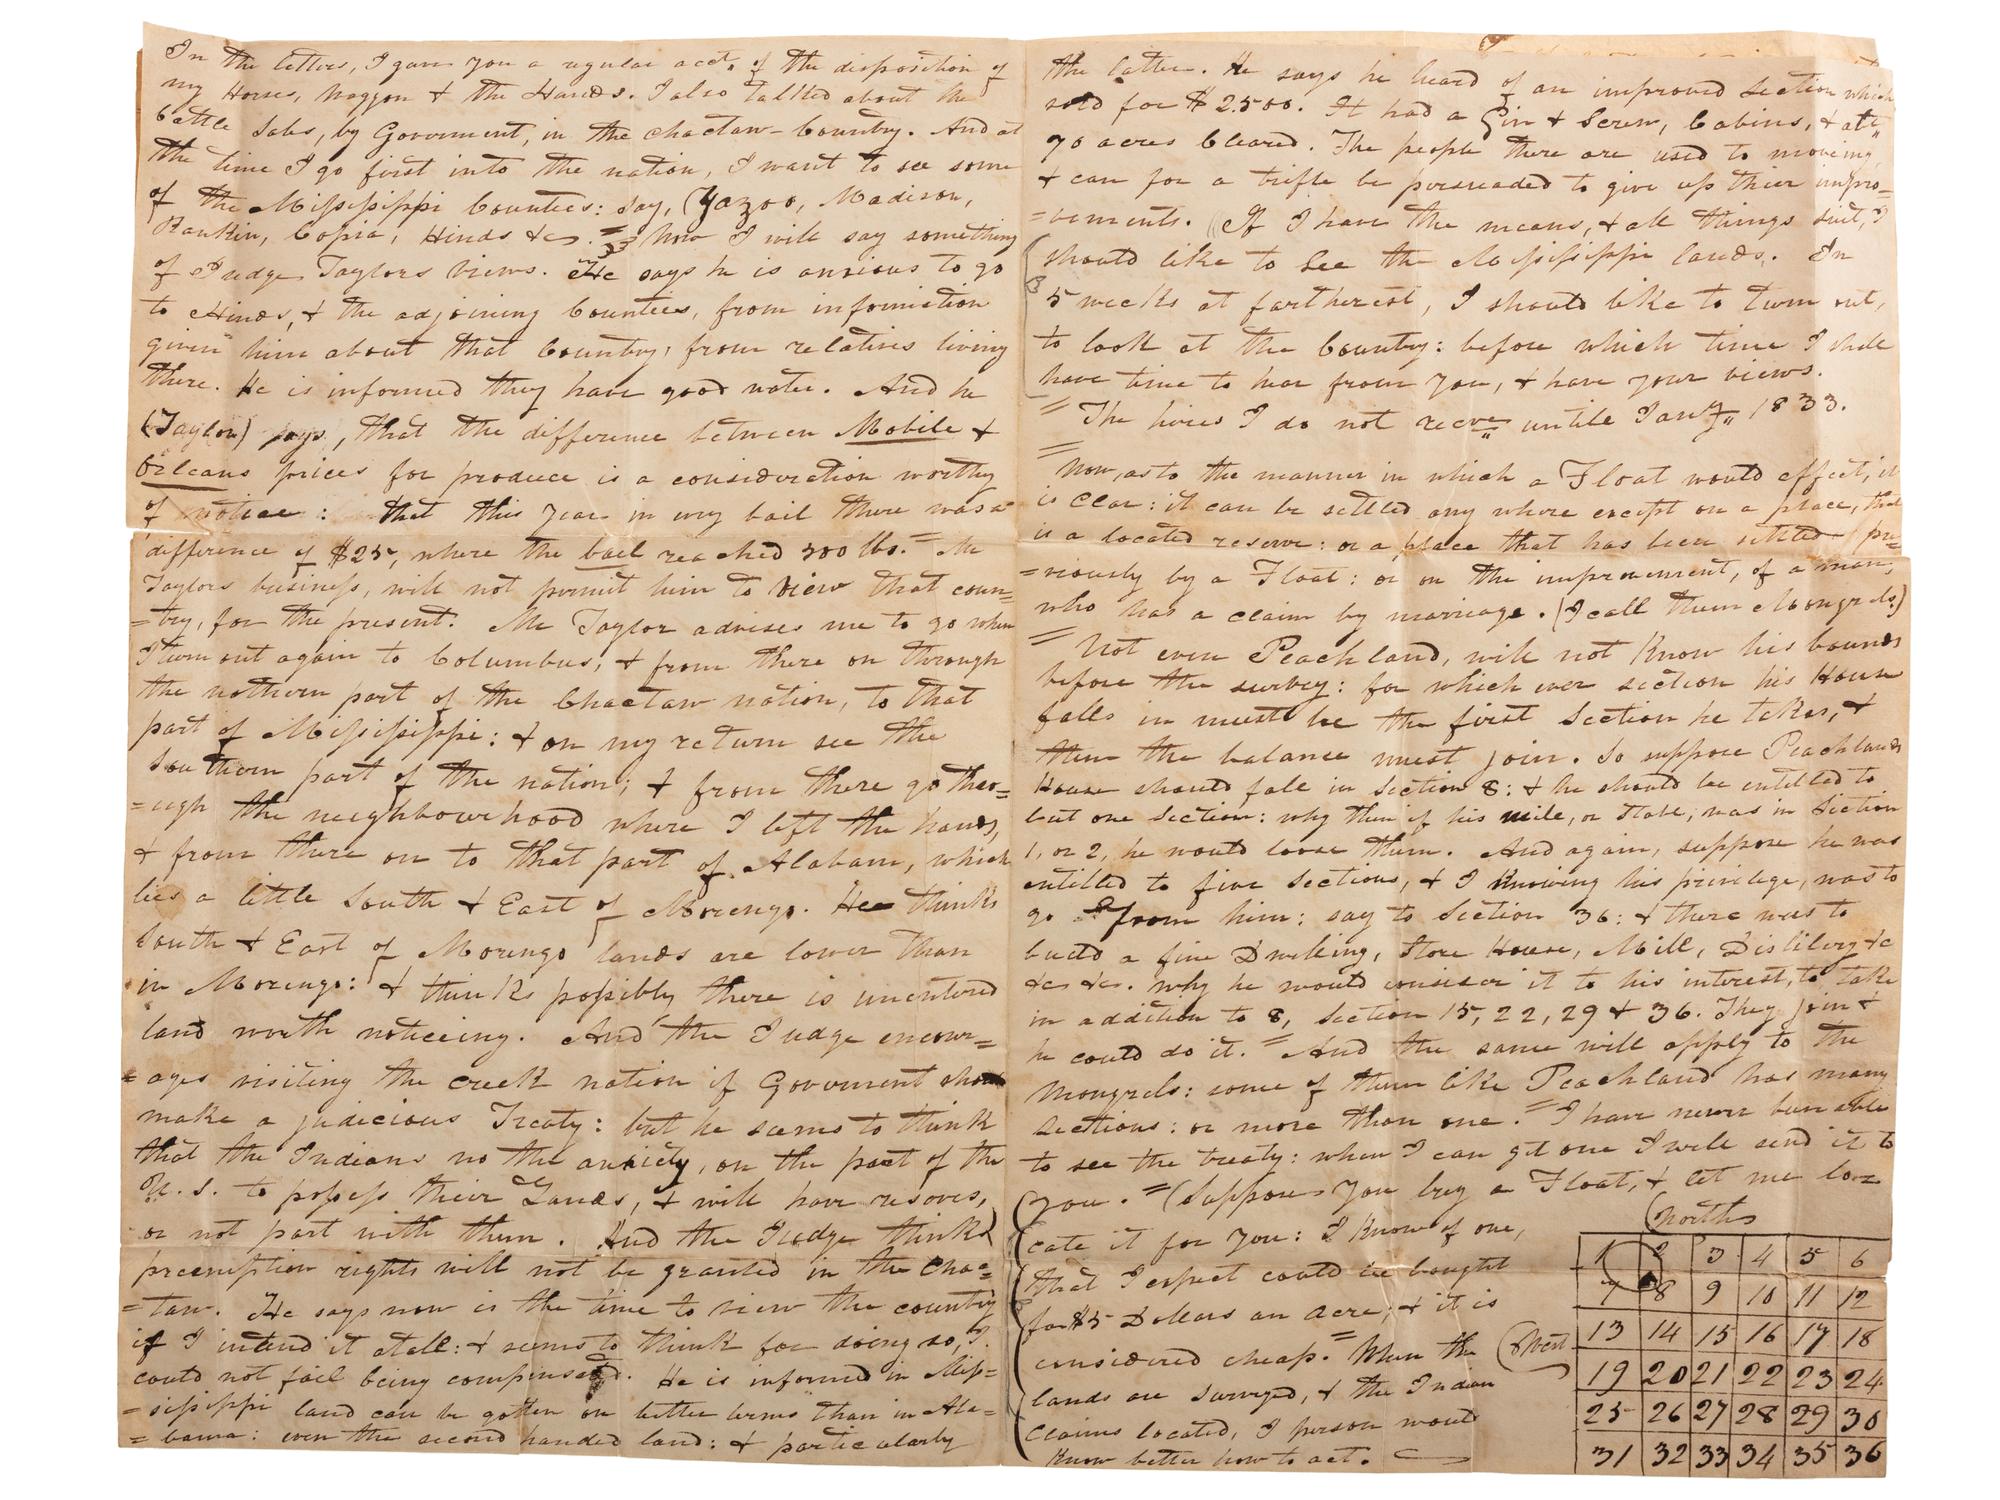 In the letters, I gave you a regular acct. of the disposition of
my Horses, Waggon & the Hands. I also talked about the
Cattle Sales, by Goverment, in the Chactaw-Country. And at
the time I go first into the nation, I want to see some
of the Mississippi Counties: say, (Yazoo, Madison,
Rankin, Copia, Hinds &c. = Now I will say something
of Judge Taylors views. He says he is anxious to go
to Hinds, & the adjoining Counties, from information
given him about that Country, from relatives living
there. He is informed they have good water. And he
(Taylor) says, that the difference between Mobile &
Orleans prices for produce is a consideration worthy
of notice: that this year in my bail there was a
difference of $25, where the bail reached 500 lbs. = Mr
Taylors business, will not permit him to view that coun=
=try, for the present. Mr Taylor advises me to go when
I turn out again to Columbus, & from there on through
the nothern part of the Chactaw nation, to that
part of Mississippi: & on my return see the
Southern part of the nation; & from there go thro=
=ugh the neighbourhood where I left the hands,
& from there on to that part of Alabam, which
lies a little South & East of Morengo. He thinks
South & East of Morengo lands are lower than
in Morengo: & thinks possibly there is unentered
land worth noticeing. And the Judge encour=
=ages visiting the creek nation if Goverment should
make a judicious Treaty: but he seems to think
that the Indians no the anxiety, on the part of the
U.S. to possess their Lands, & will have reserves,
or not part with them. And the Judge thinks
preemption rights will not be granted in the Chac=
=taw. He says now is the time to view the country
if I intend it atall: & seems to think for doing so, I
could not fail being compensated. He is informed in Mis=
=sissippi land can be gotten on better terms than in Ala=
=bama: even the second handed land: & particularly
the latter. He says he heard of an improved Section which
sold for $2500. It had a Gin & Screw, Cabins, & abt
70 acres Cleared. The people there are used to moveing,
& can for a trifle be persuaded to give up thier impro=
=vements. (If I have the means, & all things suit, I
should like to see the Mississippi lands. In
5 weeks at fartherest, I should like to turn out,
to look at the Country: before which time I shall
have time to hear from you, & have your views.
= The hires I do not recve untill Jany 1833.
= Now, as to the manner in which a Float would effect, it
is clear: it can be settled any where except on a place, that
is a located reserve: or a place that has been settled pre=
=viously by a Float: or on the improvement, of a man,
who has a claim by marriage. (I call them Mongrels)
= Not even Peachland, will not Know his bounds
before the survey: for which ever section his House
falls in must be the first Section he takes, &
then the balance must join. So suppose Peachlands
House should fall in Section 8: & he should be entitled to
but one Section: why then if his mill, or Stable, was in Section
1, or 2, he would loose them. And again, suppose he was
entitled to five Sections, & I knowing his privilege, was to
go from him: say to Section 36: & there was to
build a fine Dwelling, Store House, Mill, Distilery &c
&c &c. Why he would consider it to his interest, to take
in addition to 8, Section 15, 22, 29 & 36. They join &
he could do it. = And the same will apply to the
Mongrels: some of them like Peachland has many
sections: or more than one. = I have never been able
to see the treaty: when I can get one I will send it to
you. = (Suppose you buy a Float, & let me loo
cate it for you: I know of one,
that I expect could be bought
for $5 Dollars an acre; & it is
considered cheap. = When the
lands are surveyed, & the Indian
Claims located, I person would
Know better how to act.
(North
(West
1 2 3 4 5 6
7 8 9 10 11 12
13 14 15 16 17 18
19 20 21 22 23 24
25 26 27 28 29 30
31 32 33 34 35 36